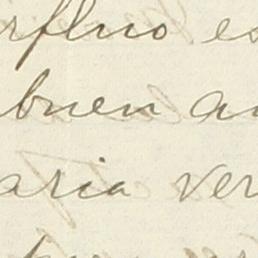 erfluo es
buen a
aria ver